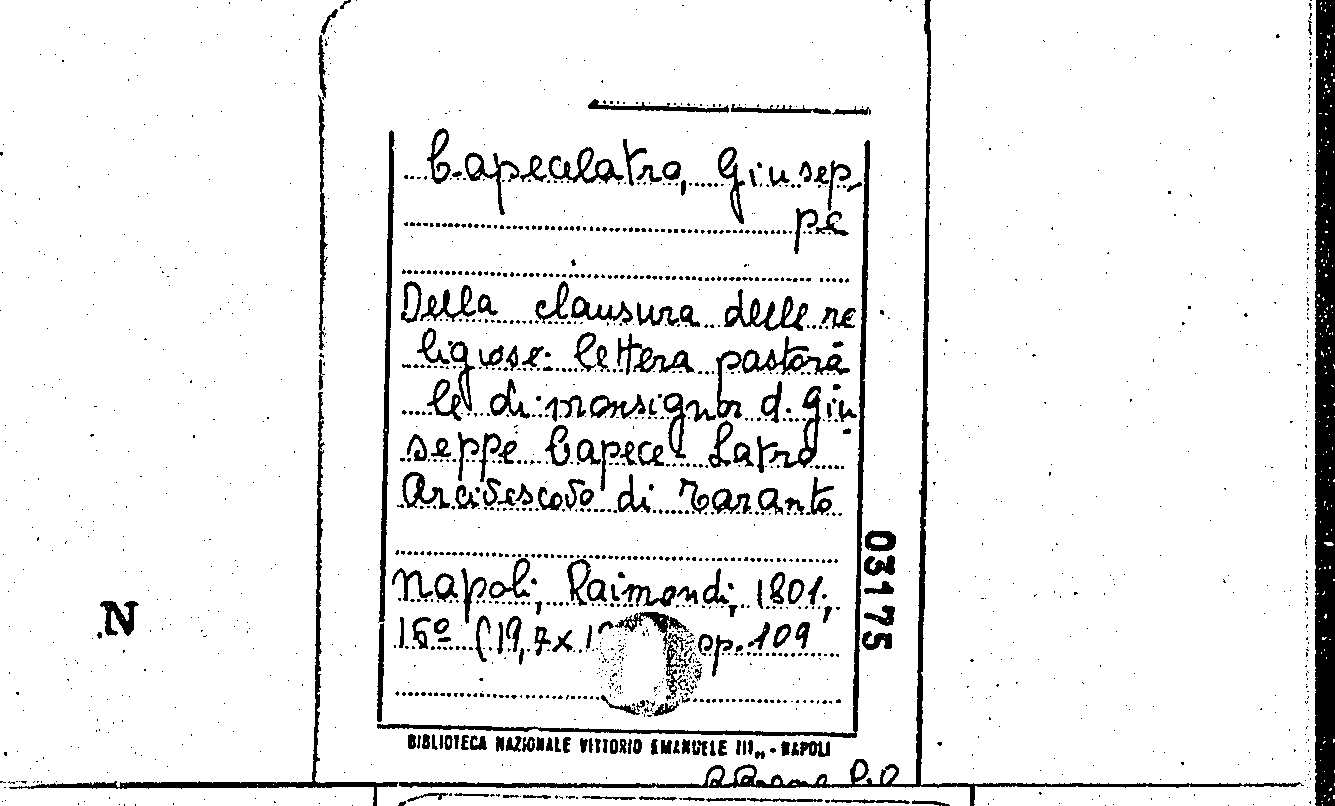 Capecelatro, Giusep-
pe
Della clausura delle re
ligiose: lettera pastora
le di monsignor d. Giu
seppe Capece Latro
Arcivescovo di Taranto
Napoli, Raimondi, 1801;
16º (19,7x1 pp. 109
03175
N
BIBLIOTECA NAZIONALE VITTORIO EMANUELE III„ - NAPOLI